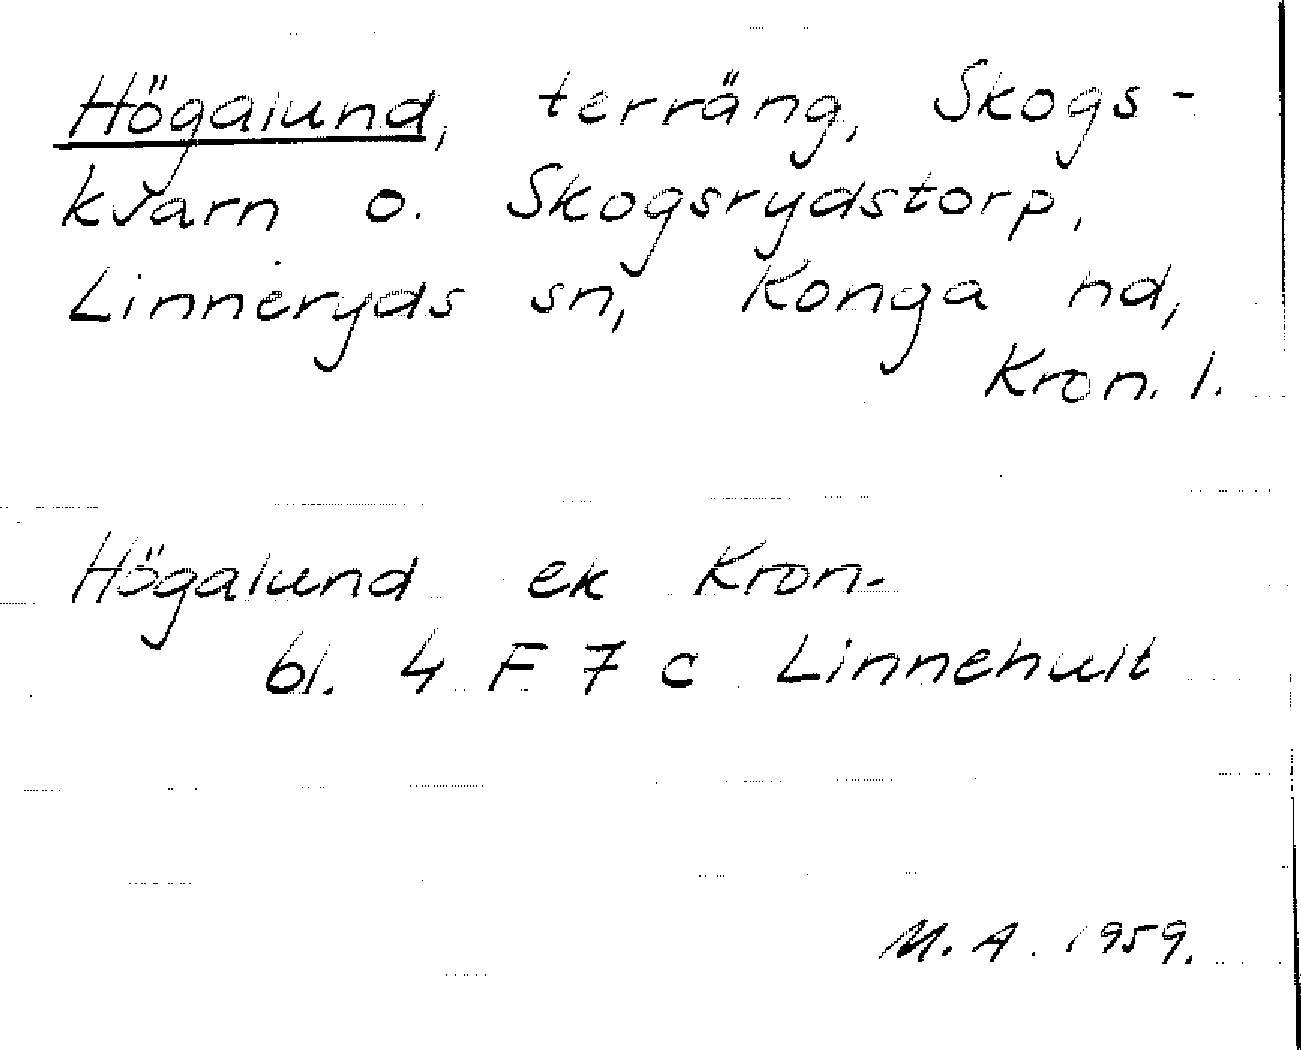 Högalund, terräng, Skogs-
kvarn o. Skogsrydstorp,
Linneryds sn, Konga hd,
Kron. l.
Högalund ek Kron-
bl. 4 F 7 c Linnehult
M. A. 1959.